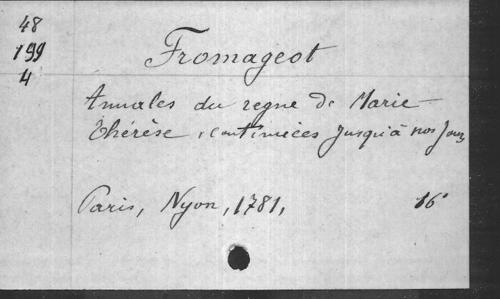 48
199
4
Fromageot
Annales du regne de Marie-
Thérèse, continuées jusqu'à nos jours
Paris, Nyon, 1781,
16º